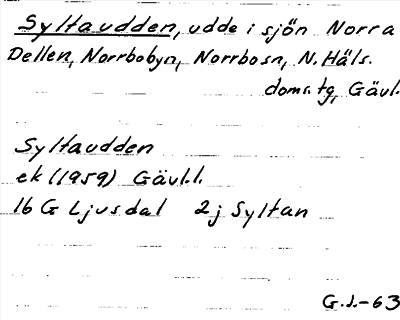 Syltaudden, udde i sjön Norra
Dellen, Norrbobyn, Norrbosn, N. Häls.
doms.tg, Gävl.
Syltaudden
ek (1959) Gävl.l.
16 G Ljusdal 2j Syltan
G.J.-63